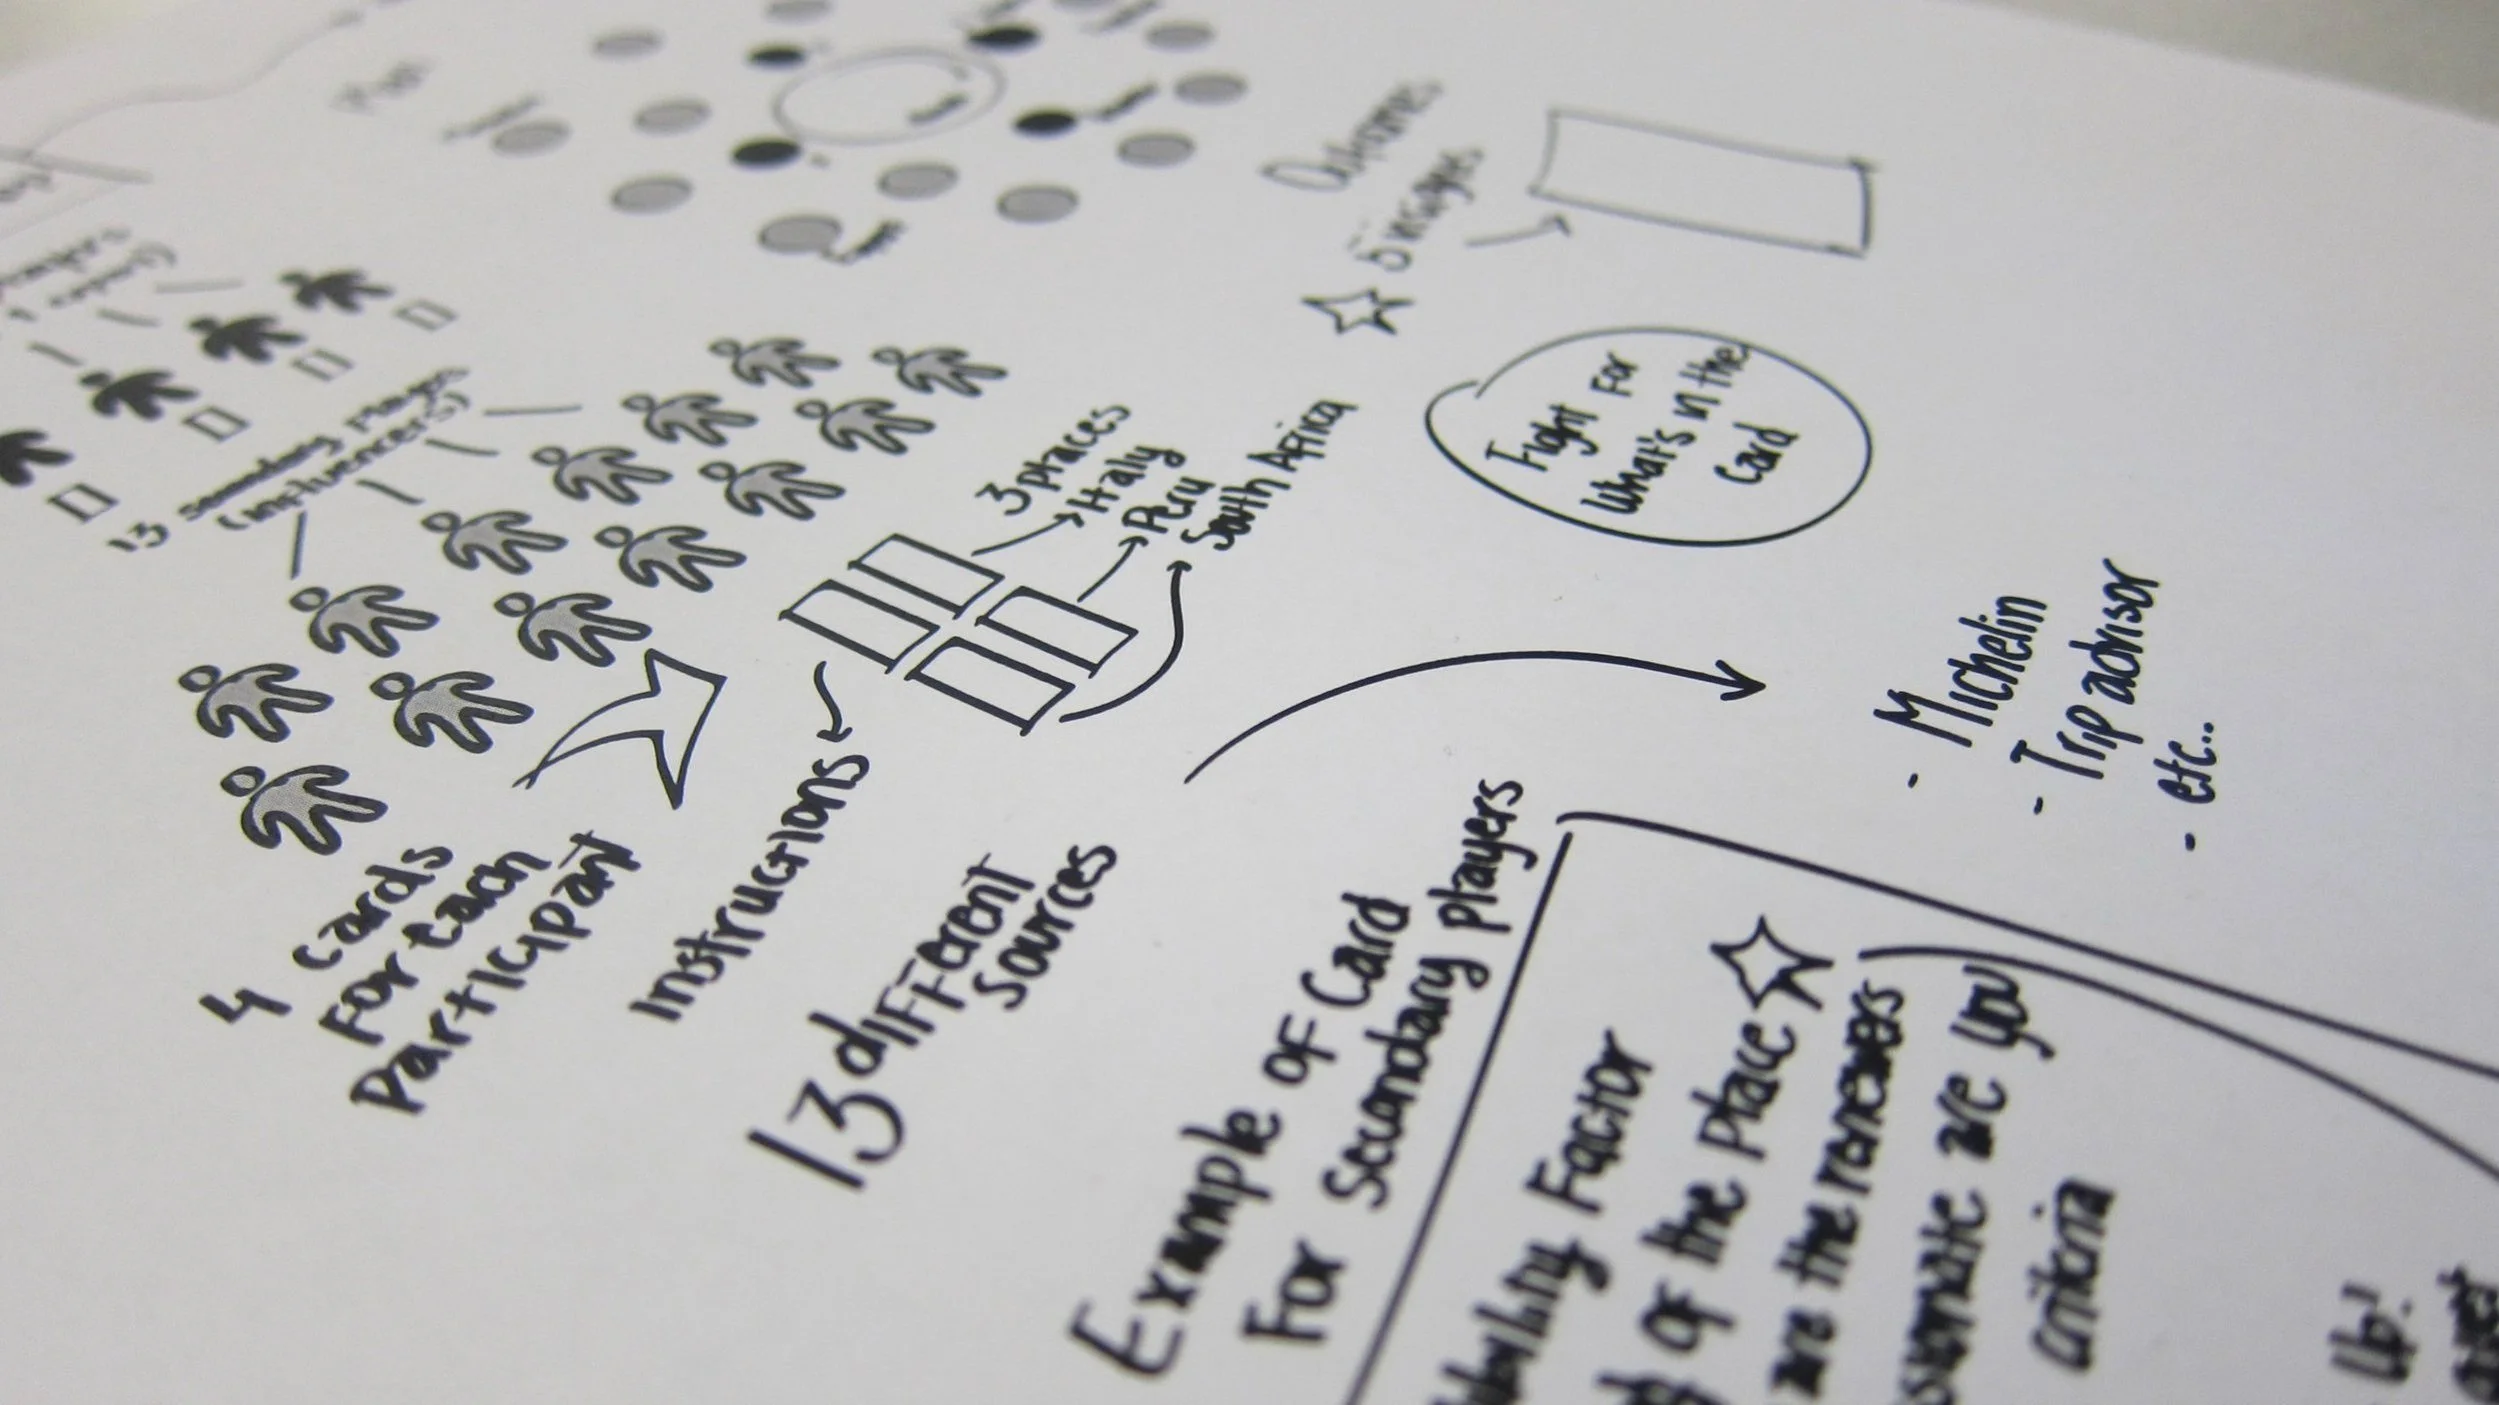 Outcomes
5 insights
Fight For
What's in the
Card
13 secondary players
(influencers)
3 places
Italy
Peru
South Africa
4 cards
For each
participant
Instructions
13 different
sources
- Michelin
- Trip advisor
- etc..
Example of Card
For Secundary players
Factor
of the place
are the reviews
are you
criteria